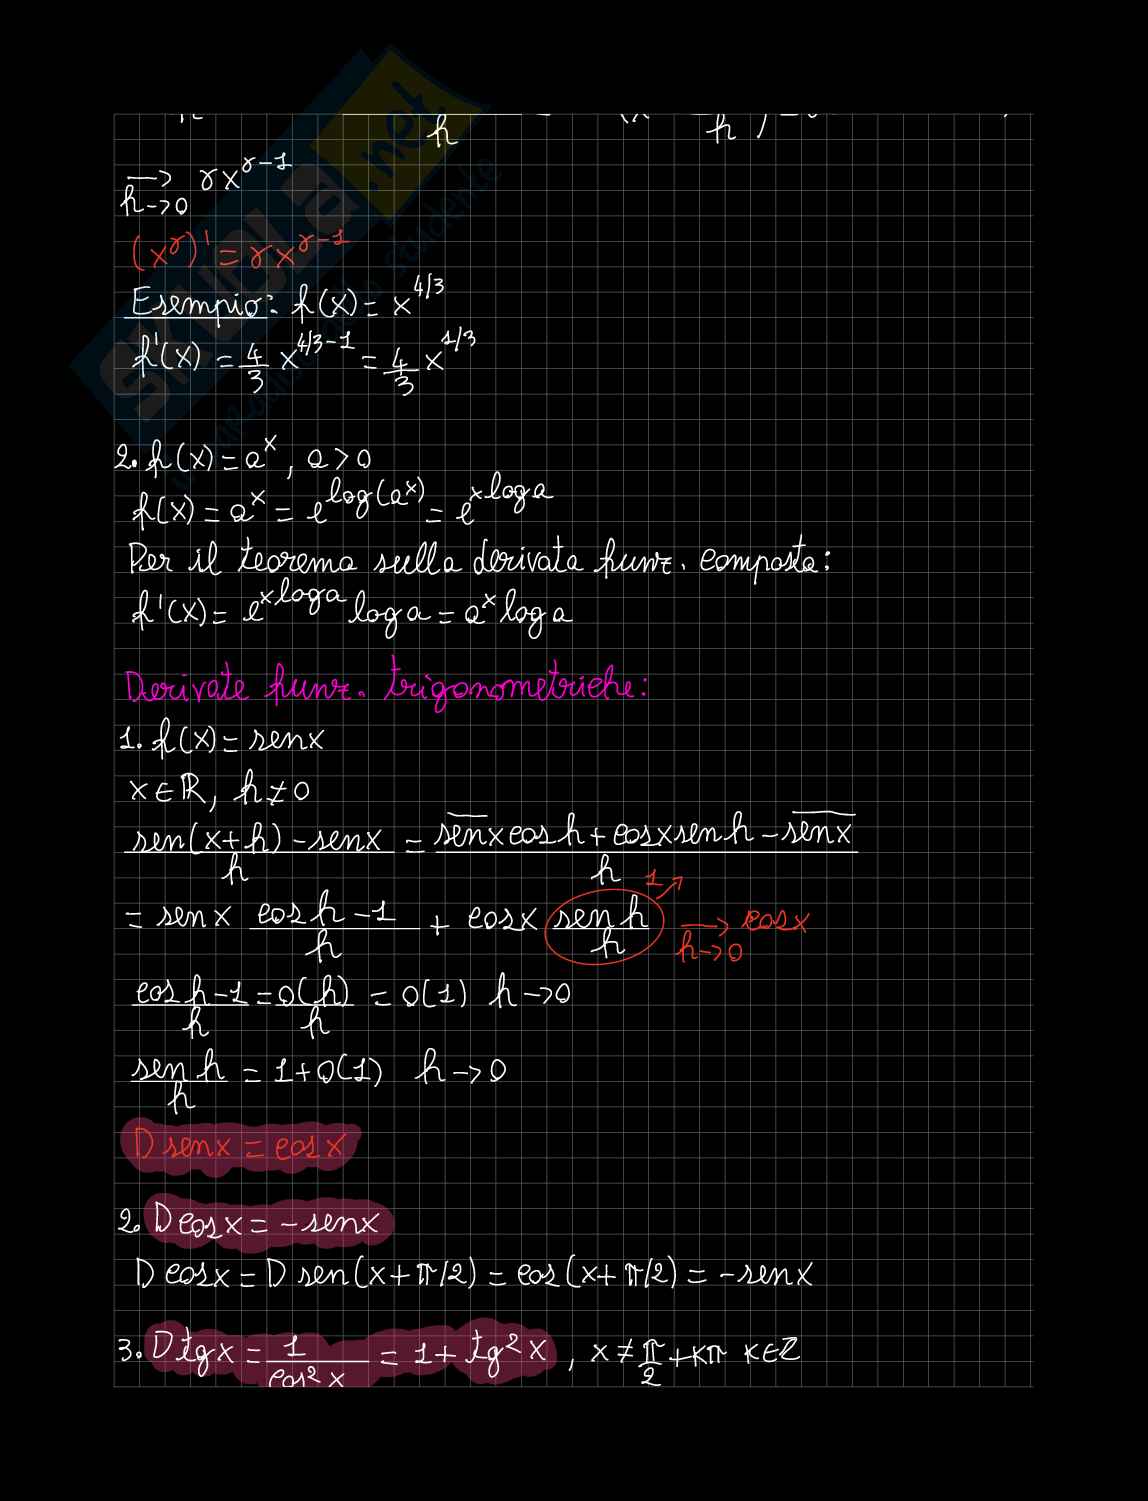 h h
h→0 γx^(γ-1)
(x^γ)' = γx^(γ-1)
Esempio: f(x) = x^(4/3)
f'(x) = 4/3 x^(4/3-1) = 4/3 x^(1/3)
2. f(x) = a^x, a > 0
f(x) = a^x = e^(log(a^x)) = e^(x log a)
Per il teorema sulla derivata funz. composta:
f'(x) = e^(x log a) log a = a^x log a
Derivate funz. trigonometriche:
1. f(x) = senx
x∈ℝ, h≠0
(sen(x+h) - senx)/h = (senx cosh + cosx senh - senx)/h
= senx (cosh-1)/h + cosx (senh/h) 1↗ →(h→0) cosx
(cosh-1)/h = o(h)/h = o(1) h→0
senh/h = 1+o(1) h→0
D senx = cosx
2. D cosx = -senx
D cosx = D sen(x+π/2) = cos(x+π/2) = -senx
3. D tgx = 1/cos²x = 1+tg²x, x≠π/2+kπ k∈ℤ
SKUOLA.net